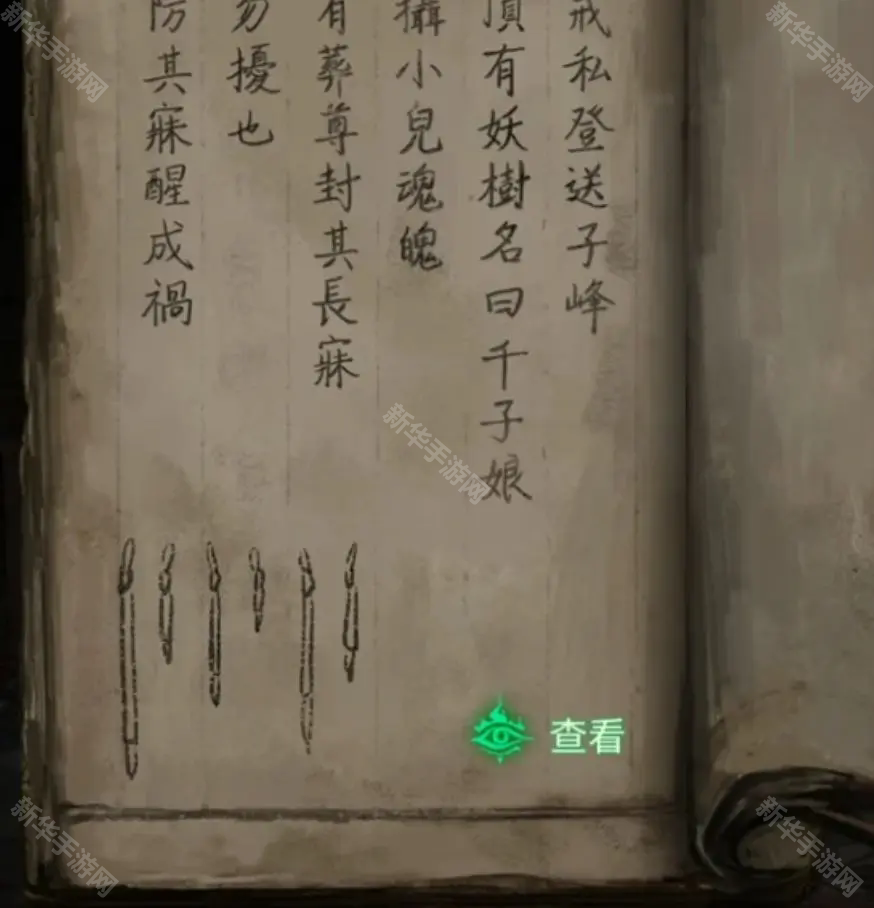 戒私登送子峰
頂有妖樹名曰千子娘
攝小兒魂魄
有葬尊封其長寐
勿擾也
防其寐醒成禍
查看
新华手游网
新华手游网
新华手游网
新华手游网
新华手游网